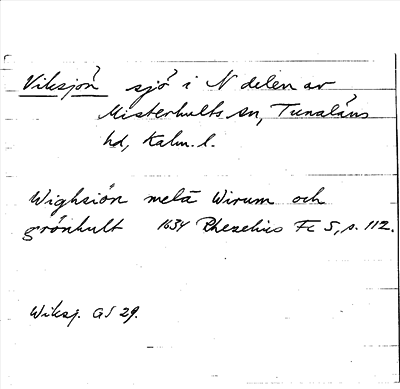 Viksjön sjö i N delen av
Misterhults sn, Tunaläns
hd, Kalm. l.
Wighsiön melā Wirum och
grönhult 1634 Rhezelius Fc 5, s. 112.
Wiksj. GS 29.